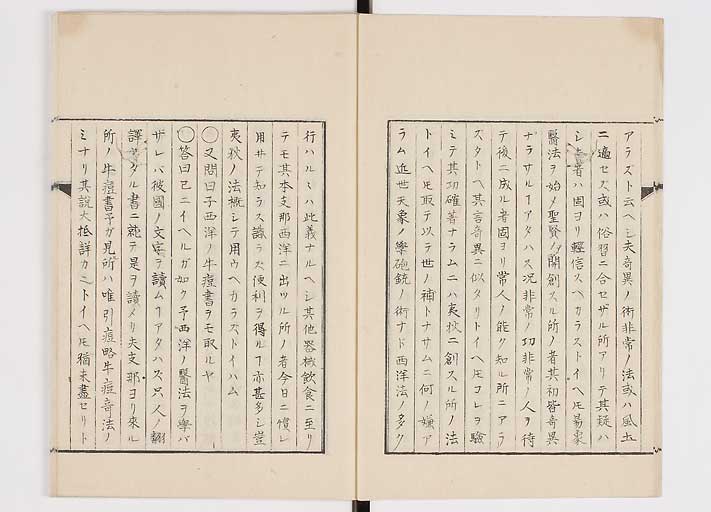 アラズト云ヘシ夫奇異ノ術非常ノ法或ハ風土
ニ適セズ或ハ俗習ニ合セザル所アリテ其疑ハ
シキ者ハ固ヨリ輕信スヘカラストイヘ𪜈易象
醫法ヲ始メ聖賢ノ開創スル所ノ者其初皆奇異
ナラサルヿアタハス况非常ノ功非常ノ人ヲ待
テ後ニ成ル者固ヨリ常人ノ能ク知ル所ニアラ
ズタトヘ其言奇異ニ似タリトイヘ𪜈コレヲ驗
ミテ其功確著ナラムニハ夷狄ニ創スル所ノ法
トイヘ𪜈取テ以テ世ノ補トナサムニ何ノ嫌ア
ラム近世天象ノ學砲銃ノ術ナド西洋法ノ多ク
行ハルヽハ此義ナルヘシ其他器械飲食ニ至リ
テモ其本支那西洋ニ出ツル所ノ者今日ニ慣レ
用井テ知ラス識ラズ便利ヲ得ルヿ亦甚多シ豈
夷狄ノ法概シテ用ウヘカラストイハム
○又問曰子西洋ノ牛痘書ヲモ取ルヤ
○答曰已ニイヘルガ如ク予西洋ノ醫法ヲ學バ
ザレバ彼國ノ文字ヲ讀ムヿアタハス只人ノ翻
譯セタル書ニ就テ是ヲ讀メリ夫支那ヨリ來ル
所ノ牛痘書予ガ見所ハ唯引痘略牛痘奇法ノ
ミナリ其說大抵詳カニトイヘ𪜈猶未盡セリト